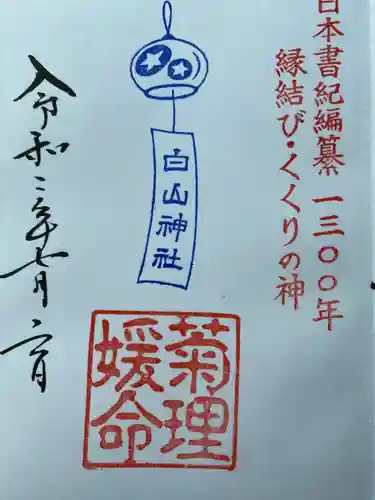 日本書紀編纂 一三〇〇年
縁結び・くくりの神
白山神社
菊理
媛命
令和二年七月